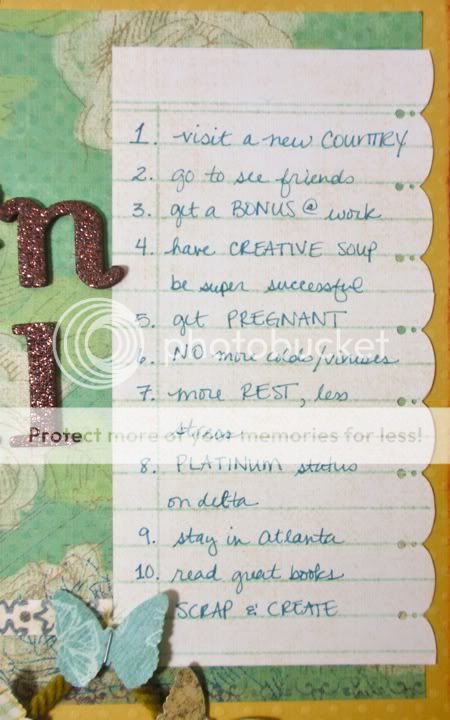 1. visit a new COUNTRY
2. go to see friends
3. get a BONUS @ work
4. have CREATIVE SOUP
be super successful
5. get PREGNANT
6. NO more colds/viruses
7. more REST, less
stress
8. PLATINUM status
on delta
9. stay in atlanta
10. read great books
SCRAP & CREATE
n
l
photobucket
Protect more of your memories for less!